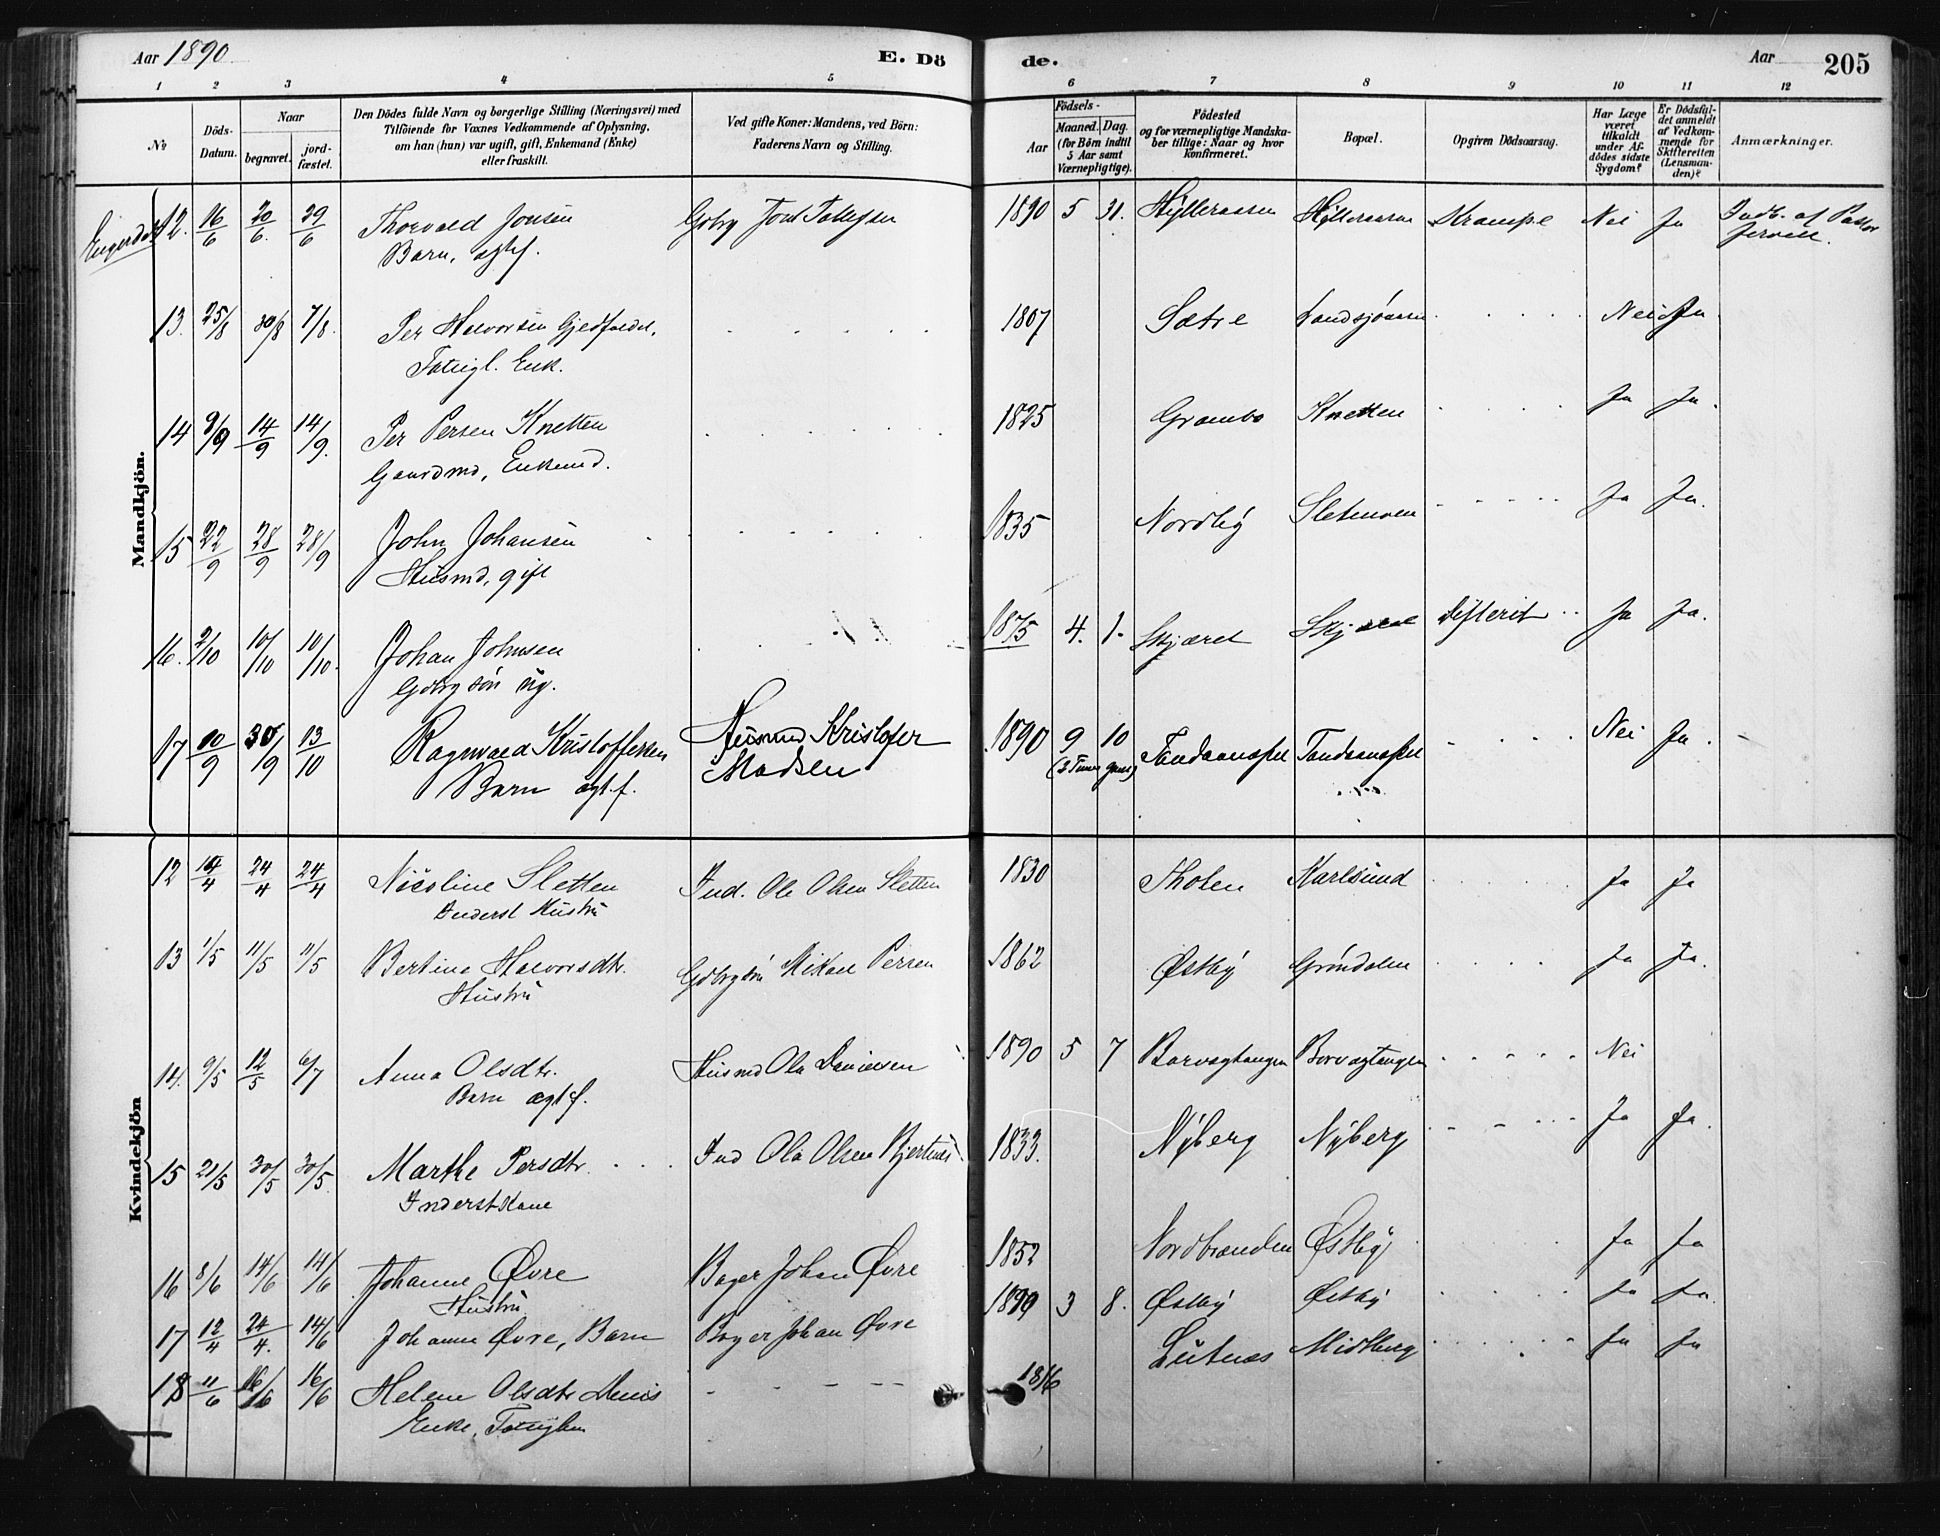 Aar 1890 E. Dö de. Aar 205
1 2 3 4 5 6 7 8 9 10 11 12
No Döds-Datum. Naar begravet. jord-fæstet.
Den Dödes fulde Navn og borgerlige Stilling (Næringsvei) med
Tilföiende for Voxnes Vedkommende af Oplysning,
om han (hun) var ugift, gift, Enkemand (Enke)
eller fraskilt.
Ved gifte Koner: Mandens, ved Börn:
Faderens Navn og Stilling.
Födsels-
Aar Maaned. Dag.
(for Börn indtil
5 Aar samt
Værnepligtige).
Födested
og for værnepligtige Mandska-
ber tillige: Naar og hvor
konfirmeret.
Bopæl.
Opgiven Dödsaarsag.
Har Læge
været
tilkaldt
under Af-
dödes sidste
Sygdom?
Er Dödsfal-
det anmeldt
af Vedkom-
mende for
Skifteretten
(Lensman-
den)?
Anmærkninger.
Mandkjön.
12. 16/6 20/6. 29/6 Thorvald Jonsen 1890 5 31. Hylleraasen Hylleraasen Krampe Nei Ja Indb. af Pastor
Barn, ægtf. Jervell.
13. 25/8 30/8 7/8. Per Halvorsen 1807 Sætre Landsjöaasen Nei Ja.
Fattigl. Enk.
14 14/9 14/9. Per Persen Knetten 1825 Grambo Knetten Ja Ja.
Gaardmd, Enkemd.
15 22/9 28/9 28/9 John Johansen 1835 Nordby Sletmoen Ja Ja.
Husmd, gift
16. 2/10 10/10 10/10. Johan Johnsen 1875 4. 1. Skjæret Difterit Ja Ja.
Gdbrgsön ug.
17 10/9 30/9 13/10 Ragnvald Kristoffersen Husmd Kristofer 1890 9 10 Nei Ja.
Barn ægt.f. Madsen
Kvindekjön
12 24/4 24/4 Nicoline Sletten Ind. Ole Olsen Sletten 1830 Tholen Karlsund Ja Ja
Inderst Hustru
13 1/5 11/5 11/5 Bertine Halvorsdtr. Mikael Persen 1862 Østby Gröndalen Ja Ja.
Hustru
14. 9/5 12/5 6/7 Anna Olsdtr. Husmd Ola Danielsen 1890 5 7 Borvagtangen Borvagtangen Nei
Barn ægtf.
15 21/5 30/5 30/5. Marthe Persdtr. Ind Ola Olsen Bjertnæs 1833. Nyberg Nyberg Ja Ja.
Inderstkone
16 8/6 14/6 14/6 Johanne Øvre Bager Johan Øvre 1852 Nordbrenden Østby Ja Ja
Hustru
17 12/4 24/4. 14/6 Johanne Øvre, Barn Bager Johan Øvre 1890 3 8. Østby Østby Ja Ja.
18 11/6 16/6 16/6 Helene Olsdtr 1816 Lutnæs Midtberg Ja Ja
Enke,